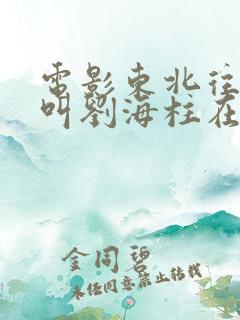 電影東北往
叫劉海柱在
金同碧
未经同意禁止转载